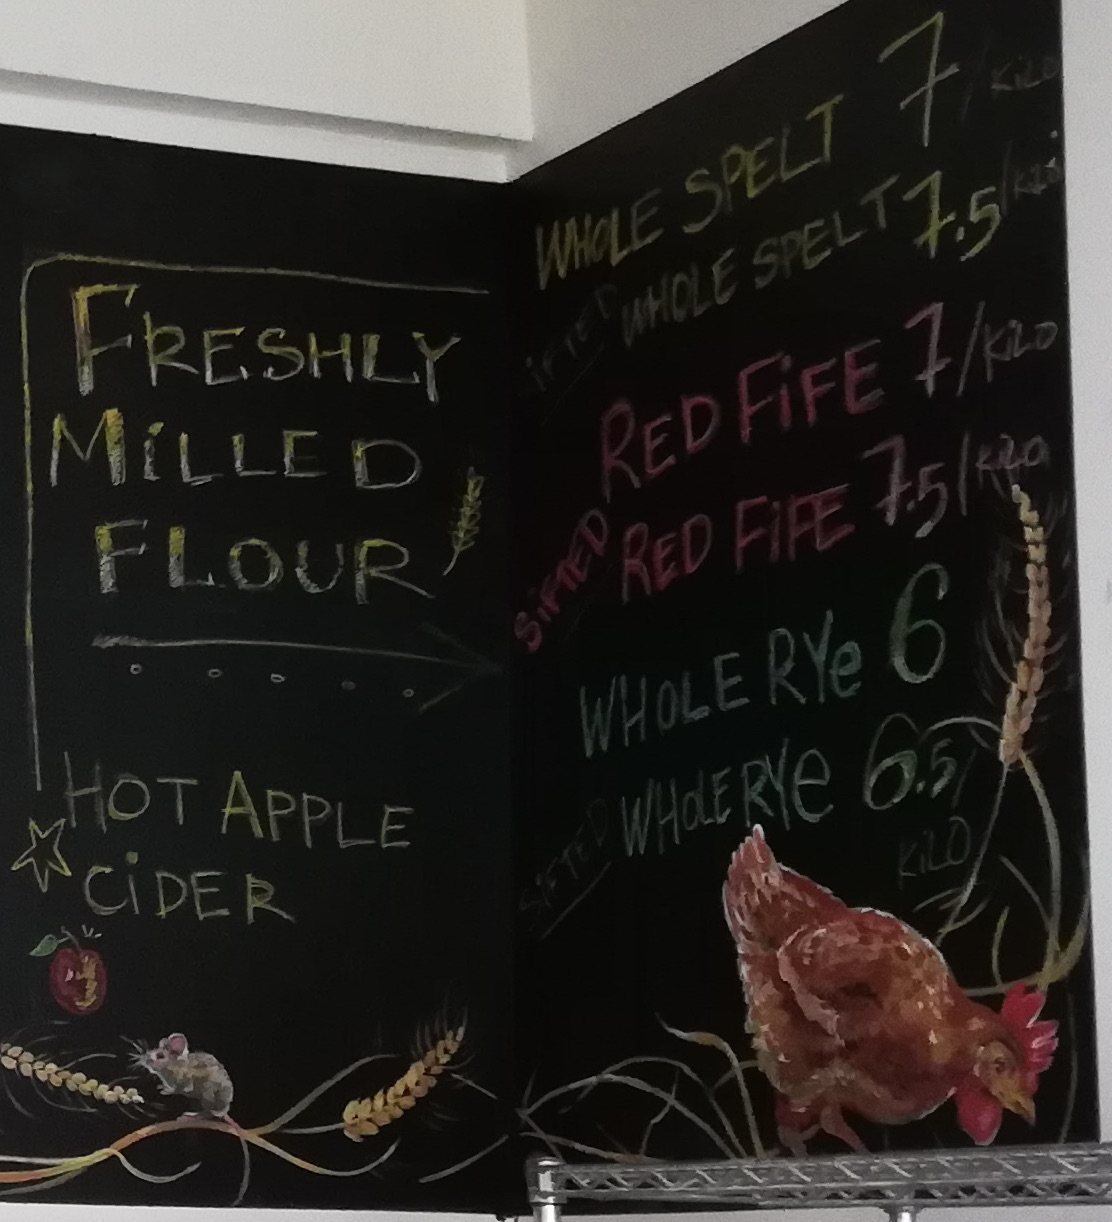 FRESHLY
MiLLED
FLOUR
HOT APPLE
CiDER
WHOLE SPELT 7/KiLO
SiFTED WHOLE SPELT 7.5/KiLO
RED FiFE 7/KiLO
SiFTED RED FiFE 7.5/KiLO
WHOLE RYe 6
SiFTED WHOLE RYe 6.5/
KiLO